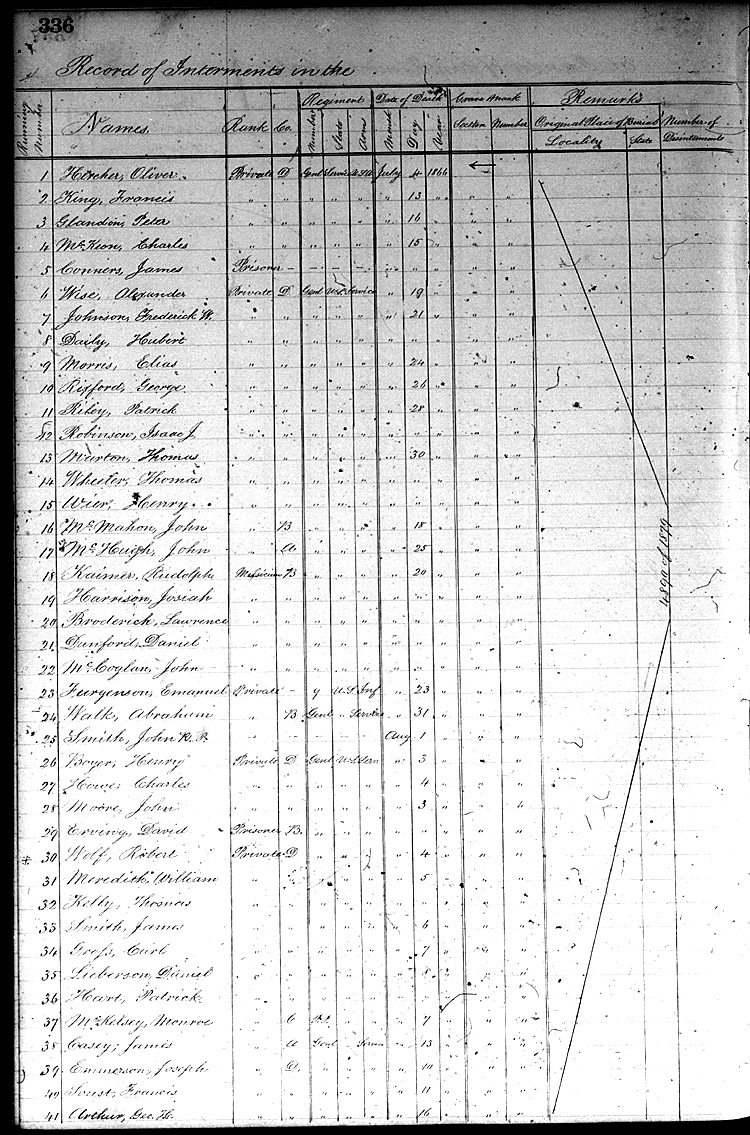 336
Record of Interments in the
Running Number Names. Rank Co. Regiment Number State Arms Date of Death Month Day Year Grave Mark Section Number Remarks Original Place of Burial Locality State Number of Disinterments
1 Hircher, Oliver Private D Genl Service U.S.A. July 4 1866
2 King, Francis " " " " " " 13 " " "
3 Glandon, Peter " " " " " " 16 " " "
4 McKeon, Charles " " " " " " 15 " " "
5 Conners, James Prisoner - - - - " " " " "
6 Wise, Alexander Private D Genl U.S. Service " 19 " " "
7 Johnson, Frederick W. " " " " " " 21 " " "
8 Daily, Hubert " " " " " " " " " "
9 Morris, Elias " " " " " " 24 " " "
10 Rixford, George " " " " " " 26 " " "
11 Riley, Patrick " " " " " " 28 " " "
12 Robinson, Isaac J. " " " " " " " " " "
13 Murton, Thomas " " " " " " 30 " " "
14 Wheeler, Thomas " " " " " " " " " "
15 Wier, Henry " " " " " " " " " "
16 McMahon, John " B " " " " 18 " " "
17 McHugh, John " A " " " " 25 " " "
18 Kaimer, Rudolph Musician B " " " " 20 " " "
19 Harrison, Josiah " " " " " " " " " "
20 Broderich, Lawrence " " " " " " " " " "
21 Dunford, Daniel " " " " " " " " " "
22 McCoglan, John " " " " " " " " " "
23 Jurgenson, Emanuel Private - 9 U.S. Inf " 23 " " "
24 Walk, Abraham " B Genl " Service " 31 " " "
25 Smith, John R.P. " - - - - Aug 1 " " "
26 Boyer, Henry Private D Genl U.S. Serv " 3 " " "
27 Howe, Charles " " " " " " 4 " " "
28 Moore, John " " " " " " 3 " " "
29 Erving, David Prisoner B. " " " " " " " "
30 Wolf, Robert Private D " " " " 4 " " "
31 Meredith, William " " " " " " 5 " " "
32 Kelly, Thomas " " " " " " " " " "
33 Smith, James " " " " " " 6 " " "
34 Gress, Carl " " " " " " 7 " " "
35 Lieberson, Daniel " " " " " " 8 " " "
36 Hart, Patrick " " " " " " " " " "
37 McKelsey, Monroe " C " " " 7 " " "
38 Casey, James " A Genl " Service " 13 " " "
39 Emmerson, Joseph " D. " " " " 10 " " "
40 Soust, Francis " " " " " " 11 " " "
41 Arthur, Geo. H. " " " " " " 16 " " "
4890 of 1879